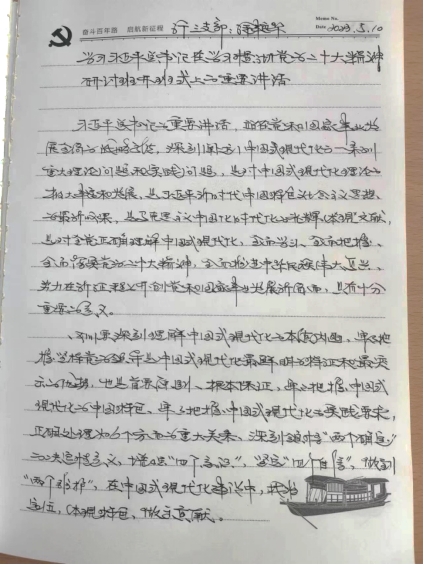 奋斗百年路 启航新征程
行三支部：
Memo No.
Date 2023.5.10
学习习近平总书记在学习贯彻党的二十大精神
研讨班开班式上的重要讲话
习近平总书记的重要讲话，
展全局的战略高度，深刻阐述了中国式现代化的一系列
重大理论问题和实践问题，是对中国式现代化理论的
极大丰富和发展，是习近平新时代中国特色社会主义思想
的最新成果，是马克思主义中国化时代化的光辉文献，
是对全党正确理解中国式现代化，全面学习、全面把握、
全面落实党的二十大精神，全面推进中华民族伟大复兴、
努力在新征程上开创党和国家事业发展新局面，具有十分
重要的意义。
要深刻理解中国式现代化的本质内涵，牢牢把
握坚持党的领导是中国式现代化最鲜明的特征和最突
出的优势，也是首要原则、根本保证，牢牢把握中国式
现代化的中国特色，牢牢把握中国式现代化的实践要求，
正确处理如6个方面的重大关系，深刻领悟“两个确立”
的决定性意义，增强“四个意识”，坚定“四个自信”，做到
“两个维护”，在中国式现代化建设中，
体现特色，做出贡献。